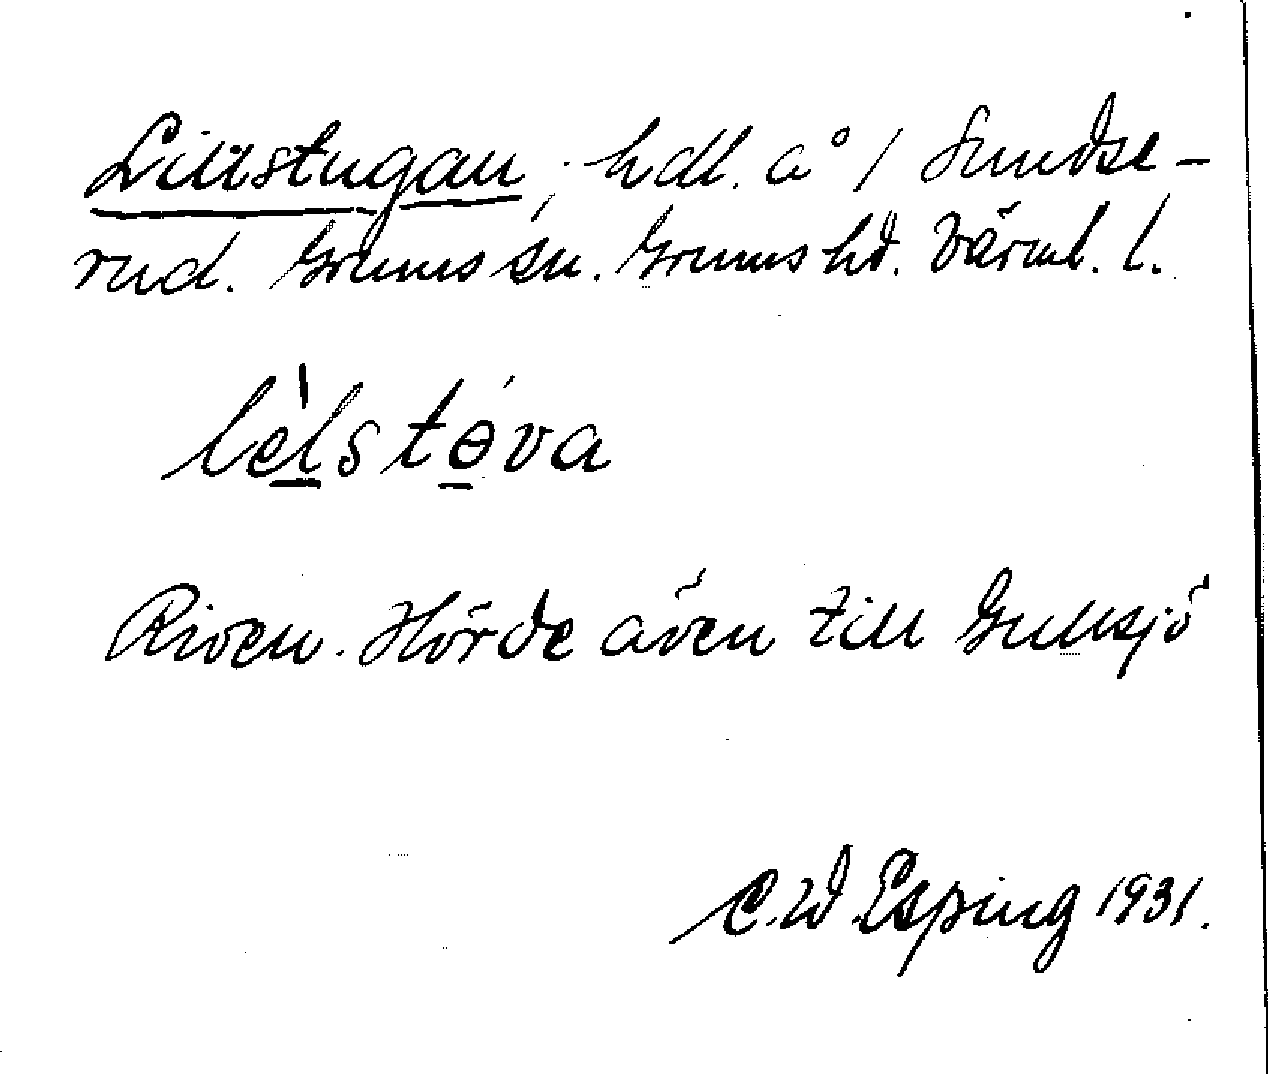 Lillstugan, hdl. å 1/ Sundse-
rud. Grums sn. Grums hd. Värml. l.
lèlstøva
Riven. Hörde även till Gullsjö
C.W. Esping 1931.